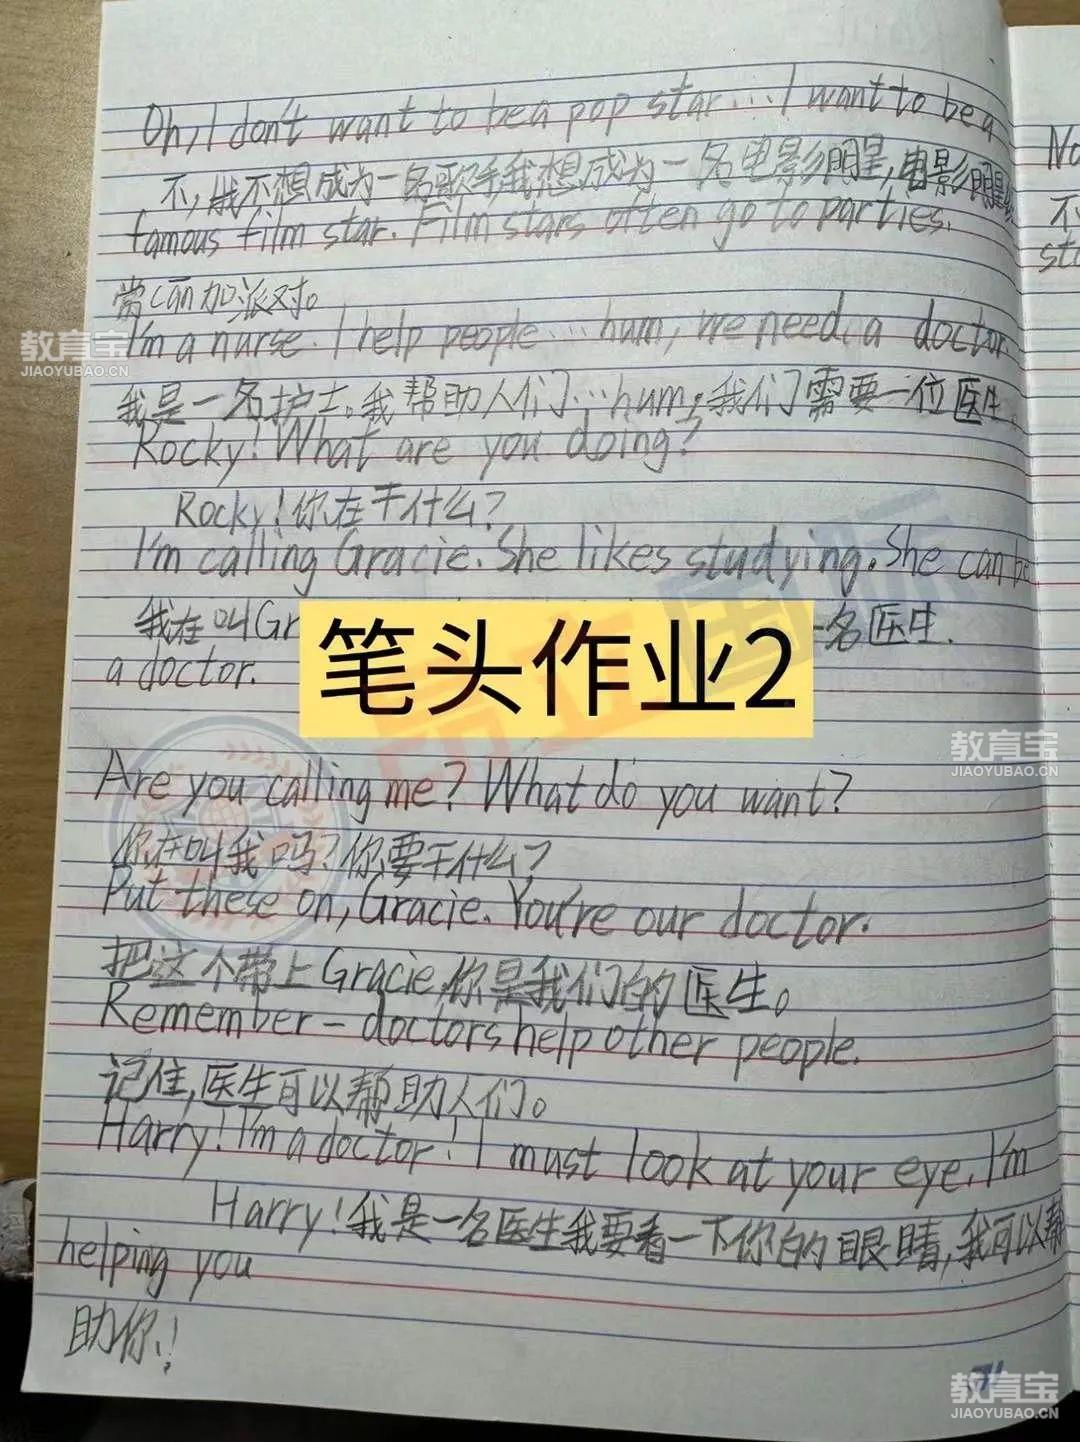 Oh, I don't want to be a pop star... I want to be a
不,我不想成为一名歌手我想成为一名电影明星,电影明星
famous film star. Film stars often go to parties.
常can加派对。
I'm a nurse. I help people...hum, we need a doctor.
我是一名护士。我帮助人们...hum,我们需要一位医生.
Rocky! What are you doing?
Rocky!你在干什么?
I'm calling Gracie. She likes studying. She can be
我在叫Gr
一名医生.
笔头作业2
a doctor.
Are you calling me? What do you want?
你在叫我吗?你要干什么?
Put these on, Gracie. You're our doctor.
把这个带上Gracie,你是我们的医生。
Remember - doctors help other people.
记住,医生可以帮助人们。
Harry! I'm a doctor! I must look at your eye. I'm
Harry!我是一名医生我要看一下你的眼睛,我可以帮
helping you
助你!
No
不
sta
教育宝
JIAOYUBAO.CN
教育宝
JIAOYUBAO.CN
教育宝
JIAOYUBAO.CN